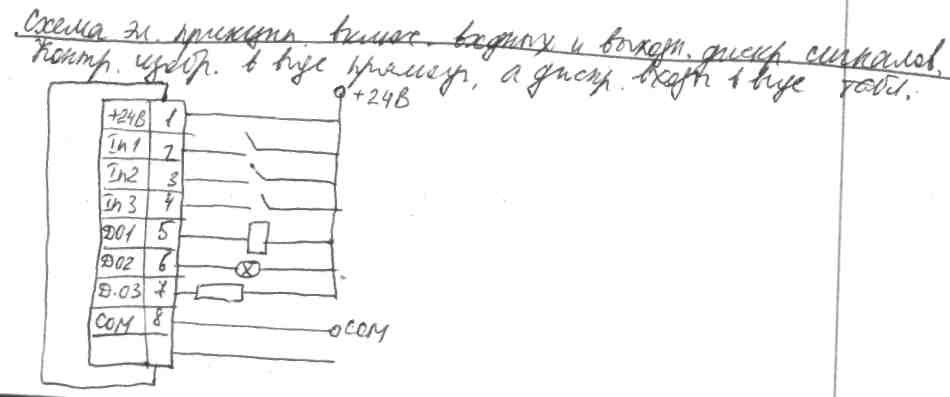 Схема эл. принцип. включ. входных и выходн. дискр. сигналов.
Контр. изобр. в виде прямоуг, а дискр. входы в виде табл.
+24В
+24В 1
In1 2
In2 3
In3 4
DO1 5
DO2 6
D.O3 7
COM 8
COM